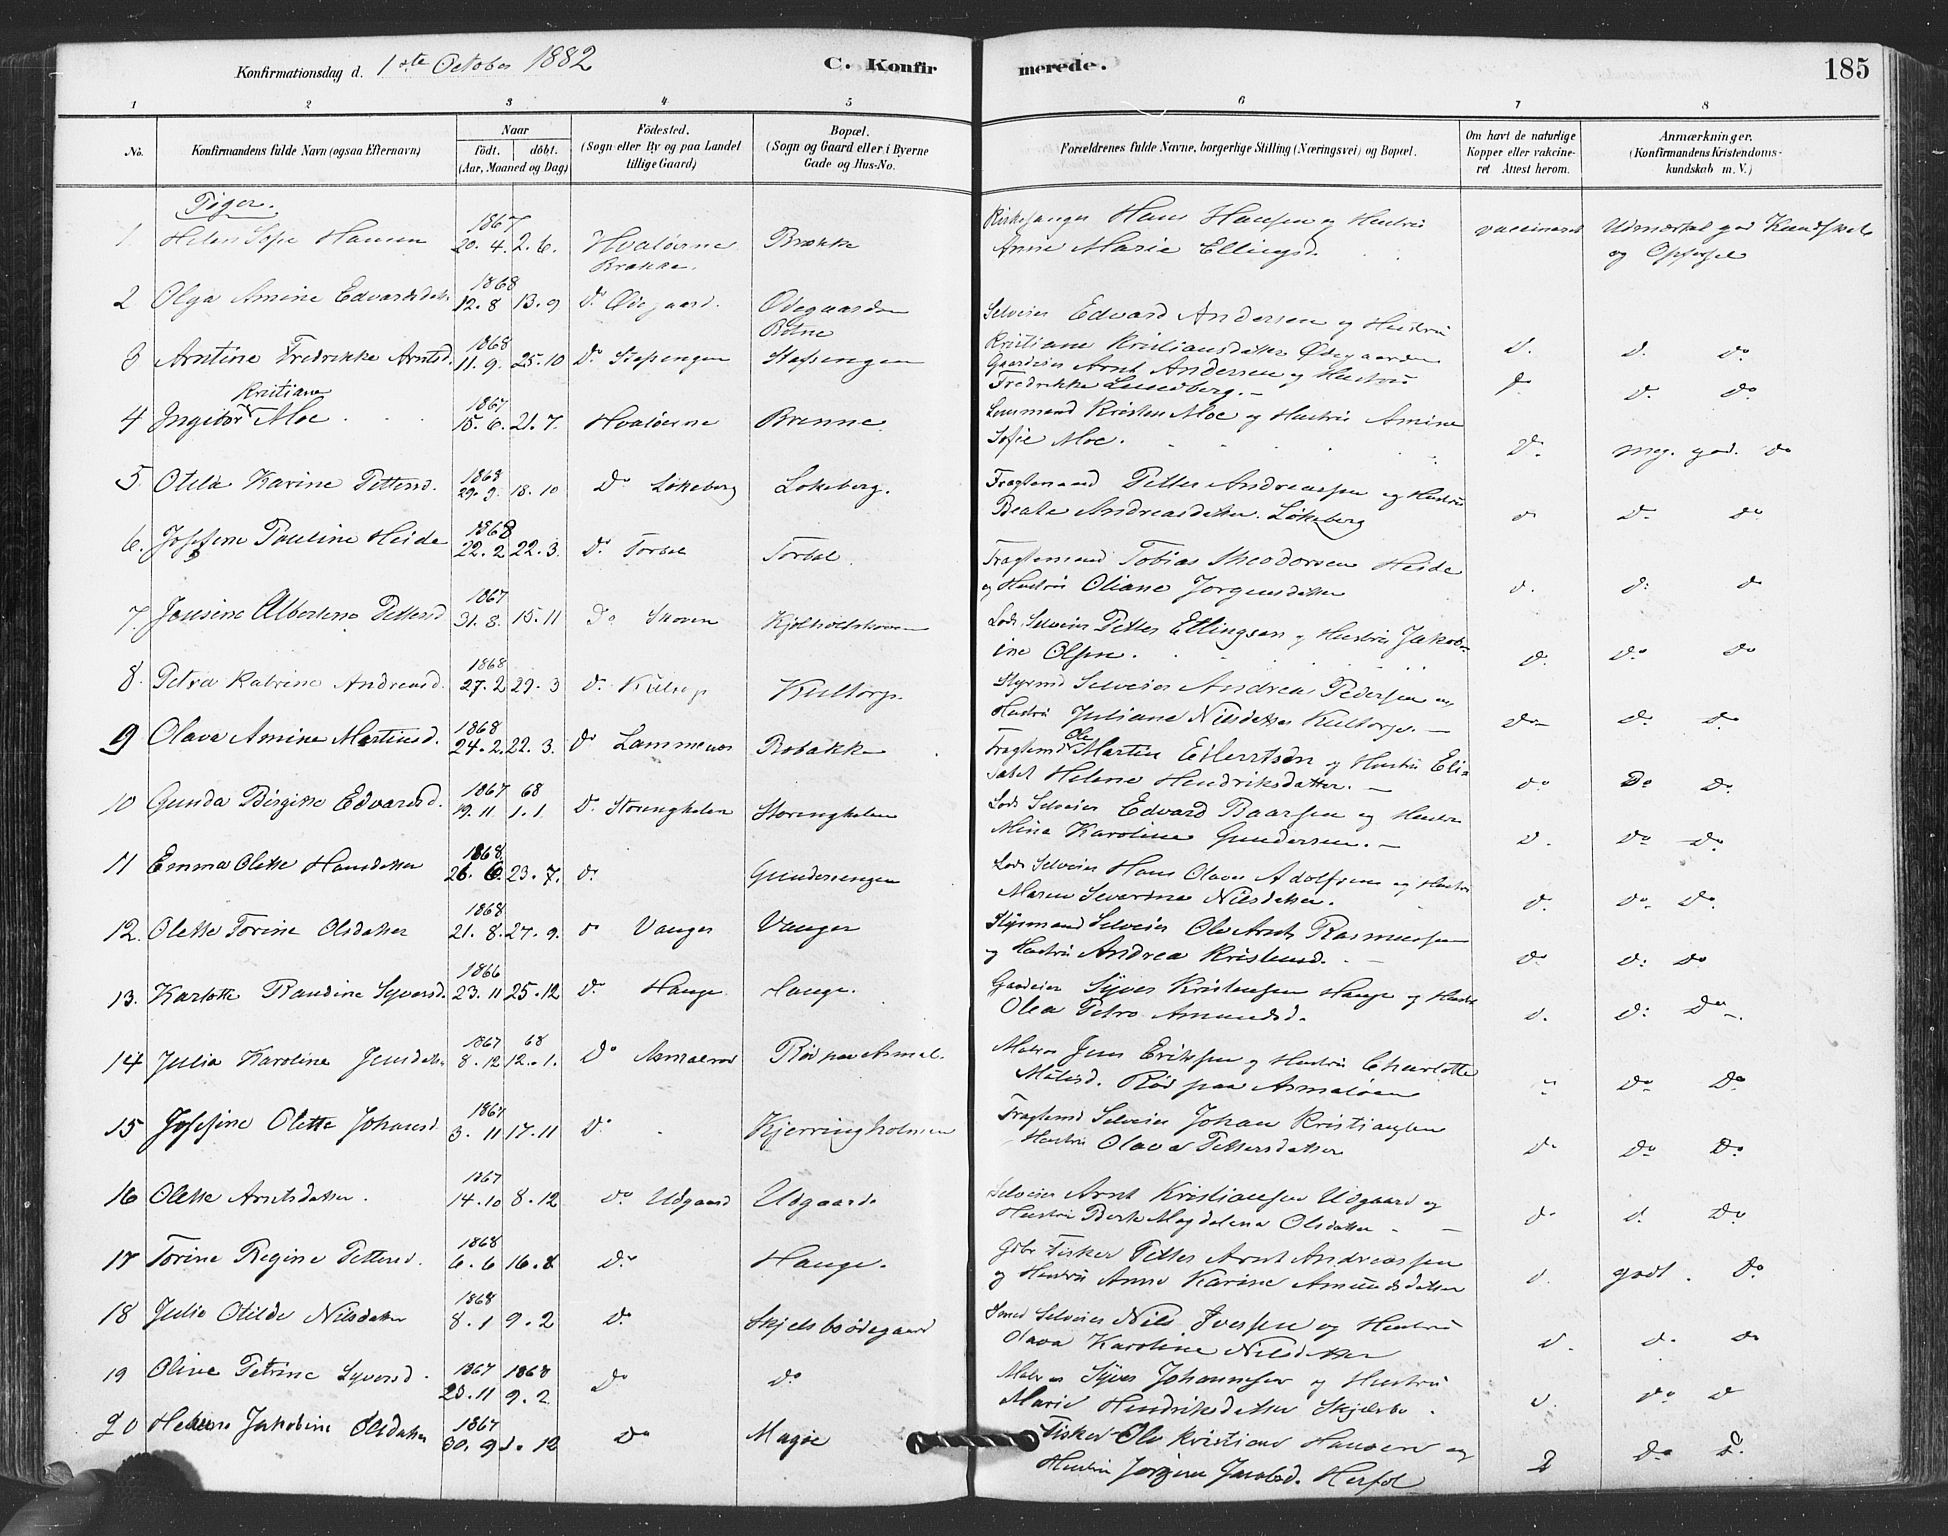 Konfirmationsdag d. 1ste October 1882 C. Konfirmerede. 185
1 2 3 4 5 6 7 8
No. Konfirmandens fulde Navn (ogsaa Efternavn) Naar födt. döbt. (Aar, Maaned og Dag) Födested. (Sogn eller By og paa Landet tillige Gaard) Bopæl. (Sogn og Gaard eller i Byerne Gade og Hus-No. Forældrenes fulde Navne, borgerlige Stilling (Næringsvei) og Bopæl. Om havt de naturlige Kopper eller vakcineret Attest herom. Anmærkninger. (Konfirmandens Kristendomskundskab m. V.)
Piger.
1867
1. Hansen 20.4. 2.6. Hvaløerne Brække Kirkesanger Hans Hansen og Hustru vaccineret Udmærket god Kundskab
Brække. Anne Marie Ellingsd. og Opførsel
1868
2 Olga Amine Edvardsdatt. 12.8 13.9 Do Ødegaard. Ødegaarden Selveier Edvard Andersen og Hustru
Botne Kristiane Kristiansdatter Ødegaarden D. D. Do
1868
3 Arntine Fredrikke Arntsd. 11.9. 25.10 Do Stafsengen Stafsengen Gaardeier Arnt Andersen og Hustru
Fredrikke Lundberg. - D. D. Do.
Kristiane 1867
4 Ingebor Moe 15.6. 21.7. Hvaløerne Brenne Kristen Moe og Hustru Amine
Sofie Moe. D. meg. god. Do
1868
5. Karine Petersd. 29.9. 18.10 Do Løkeberg Løkeberg. Fragtemand Petter Andreassen og Hustru
Beate Andreasdatter Løkeberg D D. Do
1868
6. Josefine Pauline Heide 22.2 22.3. Do Torbal Torbal. Fragtemand Tobias Theodorsen Heide
og Hustru Oliane Jørgensdatter D. D. D
1867
7 Jensine Albertine Pettersd 31.8. 15.11 Do Skoven Lods. Selveier Petter Ellingsen og Hustru Jakob-
ine Olsen. D. Do Do
1868
8. Petra Katrine Andreasd. 27.2 29.3 Do Kultorp. Styrmd Selveier Andreas Pedersen og
Hustru Juliane Nilsdatter Kultorp. - Do D. Do
1868
9 Olava Amine Martinsd. 24.2. 22.3. Do Robakke Fragtemd Ole Martin Eilertsen og Hustru Eli-
sabet Helene Hendriksdatter. - Do Do Do.
1867 68
10 Gunda Birgitte Edvardsd. 19.11. 1.1. Do Storengkelen Storengkelen Lods Selveier Edvard Baarsen og Hustru
Mina Karoline Gundersen. - D. Do Do
1868.
11 Emma Olette Hansdatter 26.6. 23.7. Do Gundersengen Lods Selveier Hans Olaves Adolfsen og Hustru
Maren Severine Nilsdatter. D. Do. Do.
1868
12. Olette Torine Olsdatter 21.8. 27.9. Do Vanger Vanger Styrmand Selveier Ole Arnt Rasmussen
og Hustru Andrea Kristensd. D. D: Do
1866
13. Karlotte Randine Syversd. 23.11 25.12 Do Hauge Hauge. Gaardeier Syver Kristensen Hauge og Hustru
Olea Petra Amundsd. D. D: Do.
1867 68
14 Julia Karoline Jensdatter 8.12 12.1. Do Asmalerød Rød paa Asmal. Matros Jens Eriksen og Hustru Charlotte
Rød paa Asmaløen " Do Do
1867
15 Josefine Olette Johansd 3.11 17.11 Do Kjerringholmen Fragtemd Selveier Johan Kristiansen
Hustru Olava Pettersdatter D Do Do
1867
16 Olette Arntsdatter. 14.10 8.12 Do Udgaard Udgaard. Selveier Arnt Kristiansen Udgaard og
Hustru Berte Magdalena Olsdatter - D D. Do
1868
17 Torine Regine Pettersd. 6.6 16.8 Do Hauge. Gbr Fisker Petter Arnt Andreassen
og Hustru Anne Karine Amundsdatter D. godt. Do
1868
18 Julie Otilde Nilsdatter 8.1 9.2 Do Skjelsbødegaard Smed Selveier Nils Iversen og Hustru
Olava Karoline Nilsdatter D. D. Do
1867 1868
19 Oline Petrine Syversd. 23.11 9.2 Do Do Matros Syver Johannesen og Hustru
Marie Hendriksdatter Skjælsbo. D. Do D
1867
20 Helene Jakobine Olsdatter 30.9 1.12 Do Magøe Fisker Ole Kristian Hansen og
Hustru Jørgine Jacobsd. Herføl D Do D.